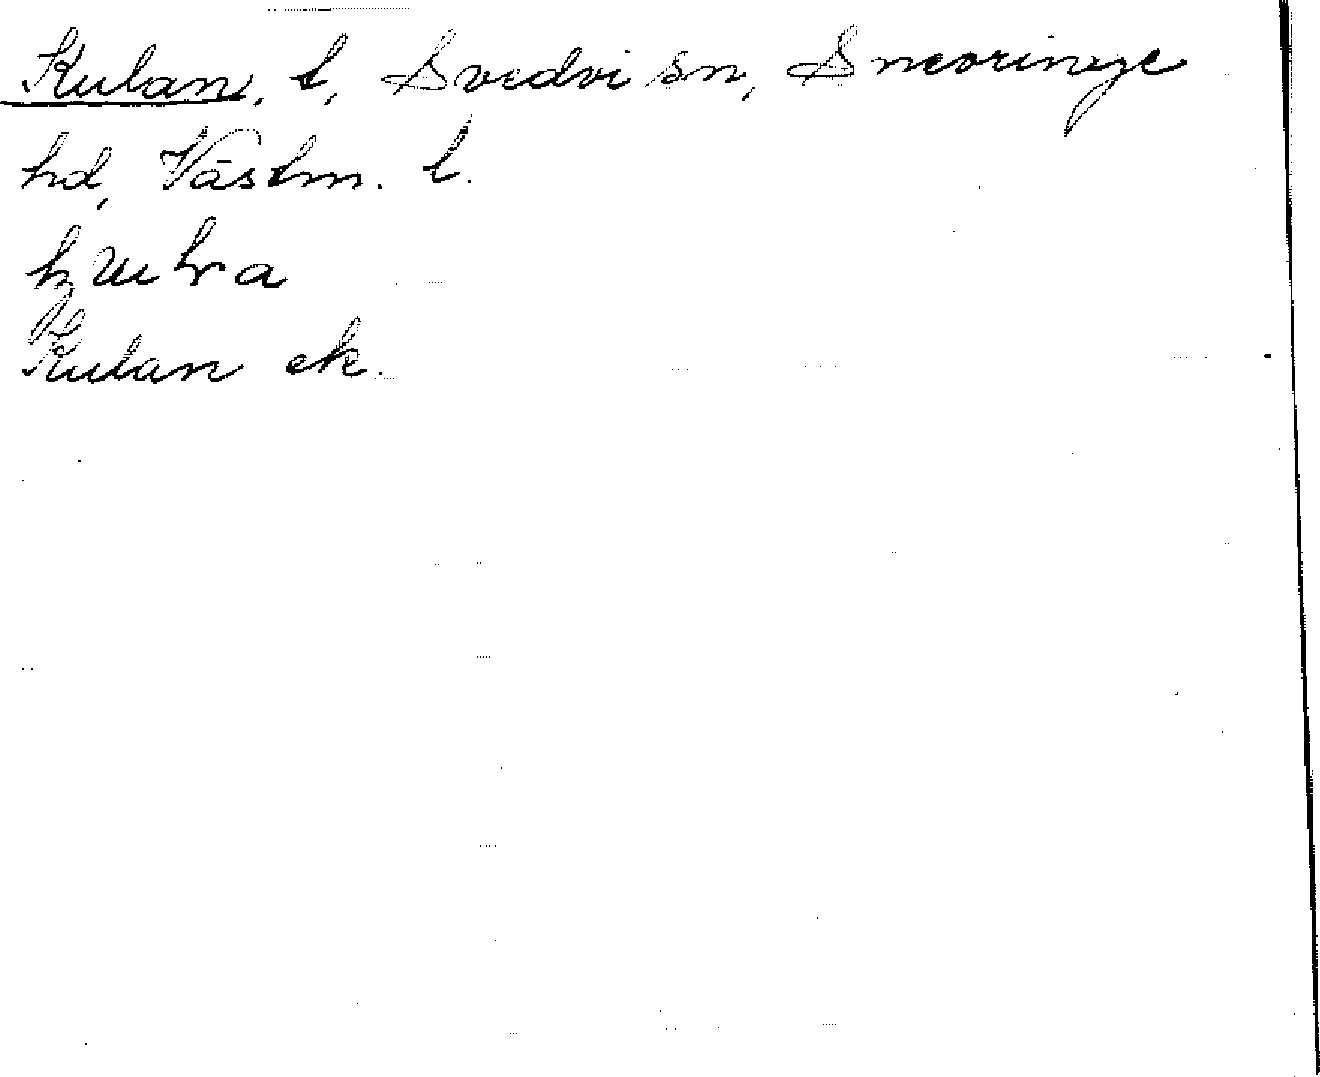 Kulan, l, Svedvi sn, Snevringe
hd, Västm. l.
Kulan ek.